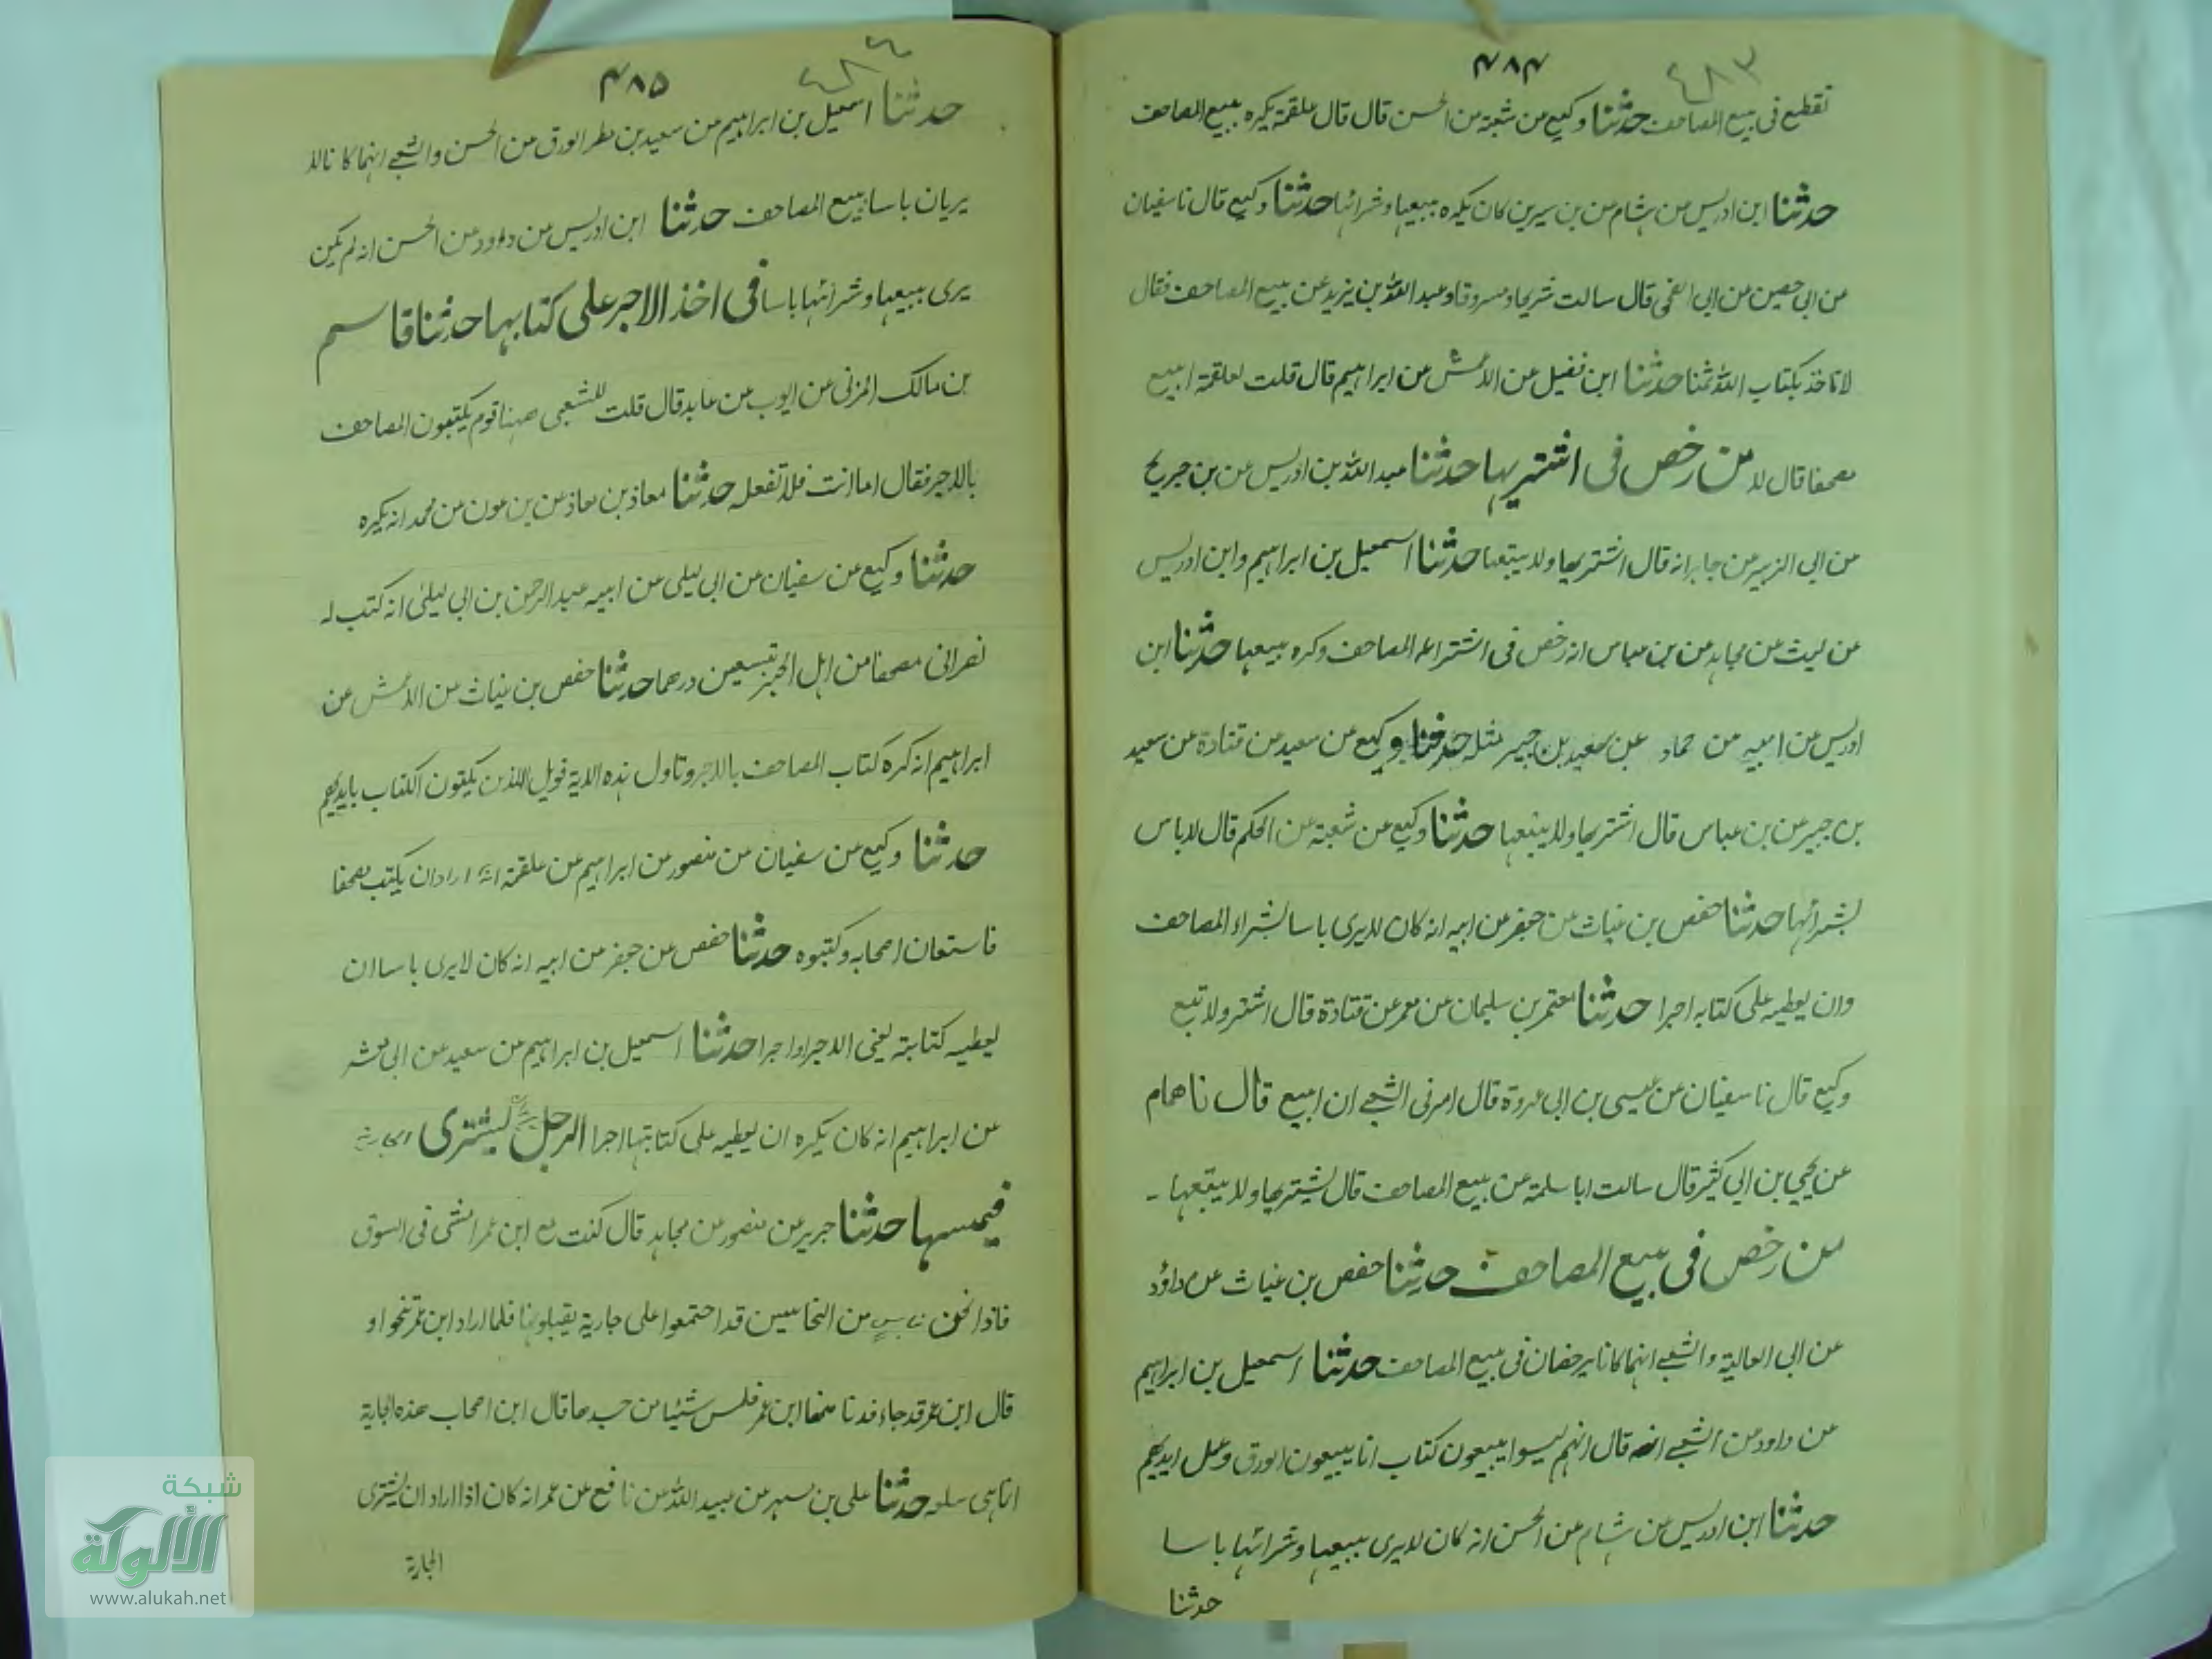 ٤٨٣
٤٨٤
تقطع فی بیع المصاحف حدثنا وکیع من شعبة من الحسن قال قال علقمة یکره بیع المصاحف
حدثنا ابن ادریس من هشام من بن سیرین کان یکره بیعها وشرائها حدثنا وکیع قال نا سفیان
من ابی حصین من ابی الضحی قال سالت شریحا ومسروقا وعبد الله بن یزید عن بیع المصاحف فقال
لا تاخذ بکتاب الله ثمنا حدثنا ابن فضیل عن الاعمش من ابراهیم قال قلت لعلقمة ابیع
مصحفا قال لا من رخص فی اشتریها حدثنا عبد الله بن ادریس عن بن جریج
من ابی الزبیر من جابر انه قال اشتریها ولا یبتعها حدثنا اسمعیل بن ابراهیم وابن ادریس
عن لیث من مجاهد من بن عباس انه رخص فی اشتراء المصاحف وکره بیعها حدثنا ابن
ادریس من ابیه من حماد عن سعید بن جبیر مثله حدثنا وکیع من سعید من قتادة من سعید
بن جبیر عن بن عباس قال اشتریها ولا یبتعها حدثنا وکیع عن شعبة عن الحکم قال لا باس
بشرائها حدثنا حفص بن غیاث من جعفر من ابیه انه کان لا یری باسا بشراء المصاحف
وان یعطیه علی کتابه اجرا حدثنا معتمر بن سلیمان عن معمر عن قتادة قال اشتر ولا تبع
وکیع قال نا سفیان عن عیسی بن ابی عروة قال امرنی الشعبے ان ابیع قال نا همام
عن یحیی بن ابی کثیر قال سالت ابا سلمة عن بیع المصاحف قال یشتریها ولا یبتعها -
من رخص فی بیع المصاحف حدثنا حفص بن غیاث عن داؤد
عن ابی العالیة والشعبے انهما کانا یرخصان فی بیع المصاحف حدثنا اسمعیل بن ابراهیم
من داود من الشعبے انه قال انهم لیسوا یبیعون کتاب انا یبیعون الورق وعمل ایدیهم
حدثنا ابن ادریس من هشام عن الحسن انه کان لا یری ببیعها وشرائها باسا
حدثنا
٤٨٥
حدثنا اسمعیل بن ابراهیم من سعید بن مطر الورق من الحسن والشعبے انهما کانا لا
یریان باسا ببیع المصاحف حدثنا ابن ادریس من داوود من الحسن انه لم یکن
یری ببیعها وشرائها باسا فی اخذ الاجر علی کتابها حدثنا قاسم
بن مالک المزنی من ایوب من عابد قال قلت للشعبی ههنا قوم یکتبون المصاحف
بالاجر فقال اما انت فلا تفعله حدثنا معاذ بن معاذ من بن عون من محمد انه یکره
حدثنا وکیع من سفیان من ابی لیلی من ابیه عبد الرحمن بن ابی لیلی انه کتب له
نصرانی مصحفا من اهل الحیرة بتسعین درهما حدثنا حفص بن غیاث من الاعمش عن
ابراهیم انه کره کتاب المصاحف بالاجر وتاول هذه الایة فویل للذین یکتبون الکتاب بایدیهم
حدثنا وکیع من سفیان من منصور من ابراهیم عن علقمة انه اراد ان یکتب مصحفا
فاستعان اصحابه وکتبوه حدثنا حفص من جعفر من ابیه انه کان لا یری باسا ان
یعطیه کتابته یعنی الاجر او اجرا حدثنا اسمعیل بن ابراهیم من سعید عن ابی معشر
عن ابراهیم انه کان یکره ان یعطیه علی کتابتها اجرا الرجل یشتری الجاریة
فیمسها حدثنا جریر عن منصور عن مجاهد قال کنت مع ابن عمر امشی فی السوق
فاذا نحن بناس من النخاسین قد اجتمعوا علی جاریة یقبلونها فلما اراد ابن عمر تنحوا و
قال ابن عمر قد جاء فدنا منها ابن عمر فلمس شیئا من جسدها قال این اصحاب هذه الجاریة
انا هی سلعه حدثنا علی بن مسهر من عبید الله من نافع عن عمر انه کان اذا اراد ان یشتری
الجاریة
شبكة
الألوكة
www.alukah.net